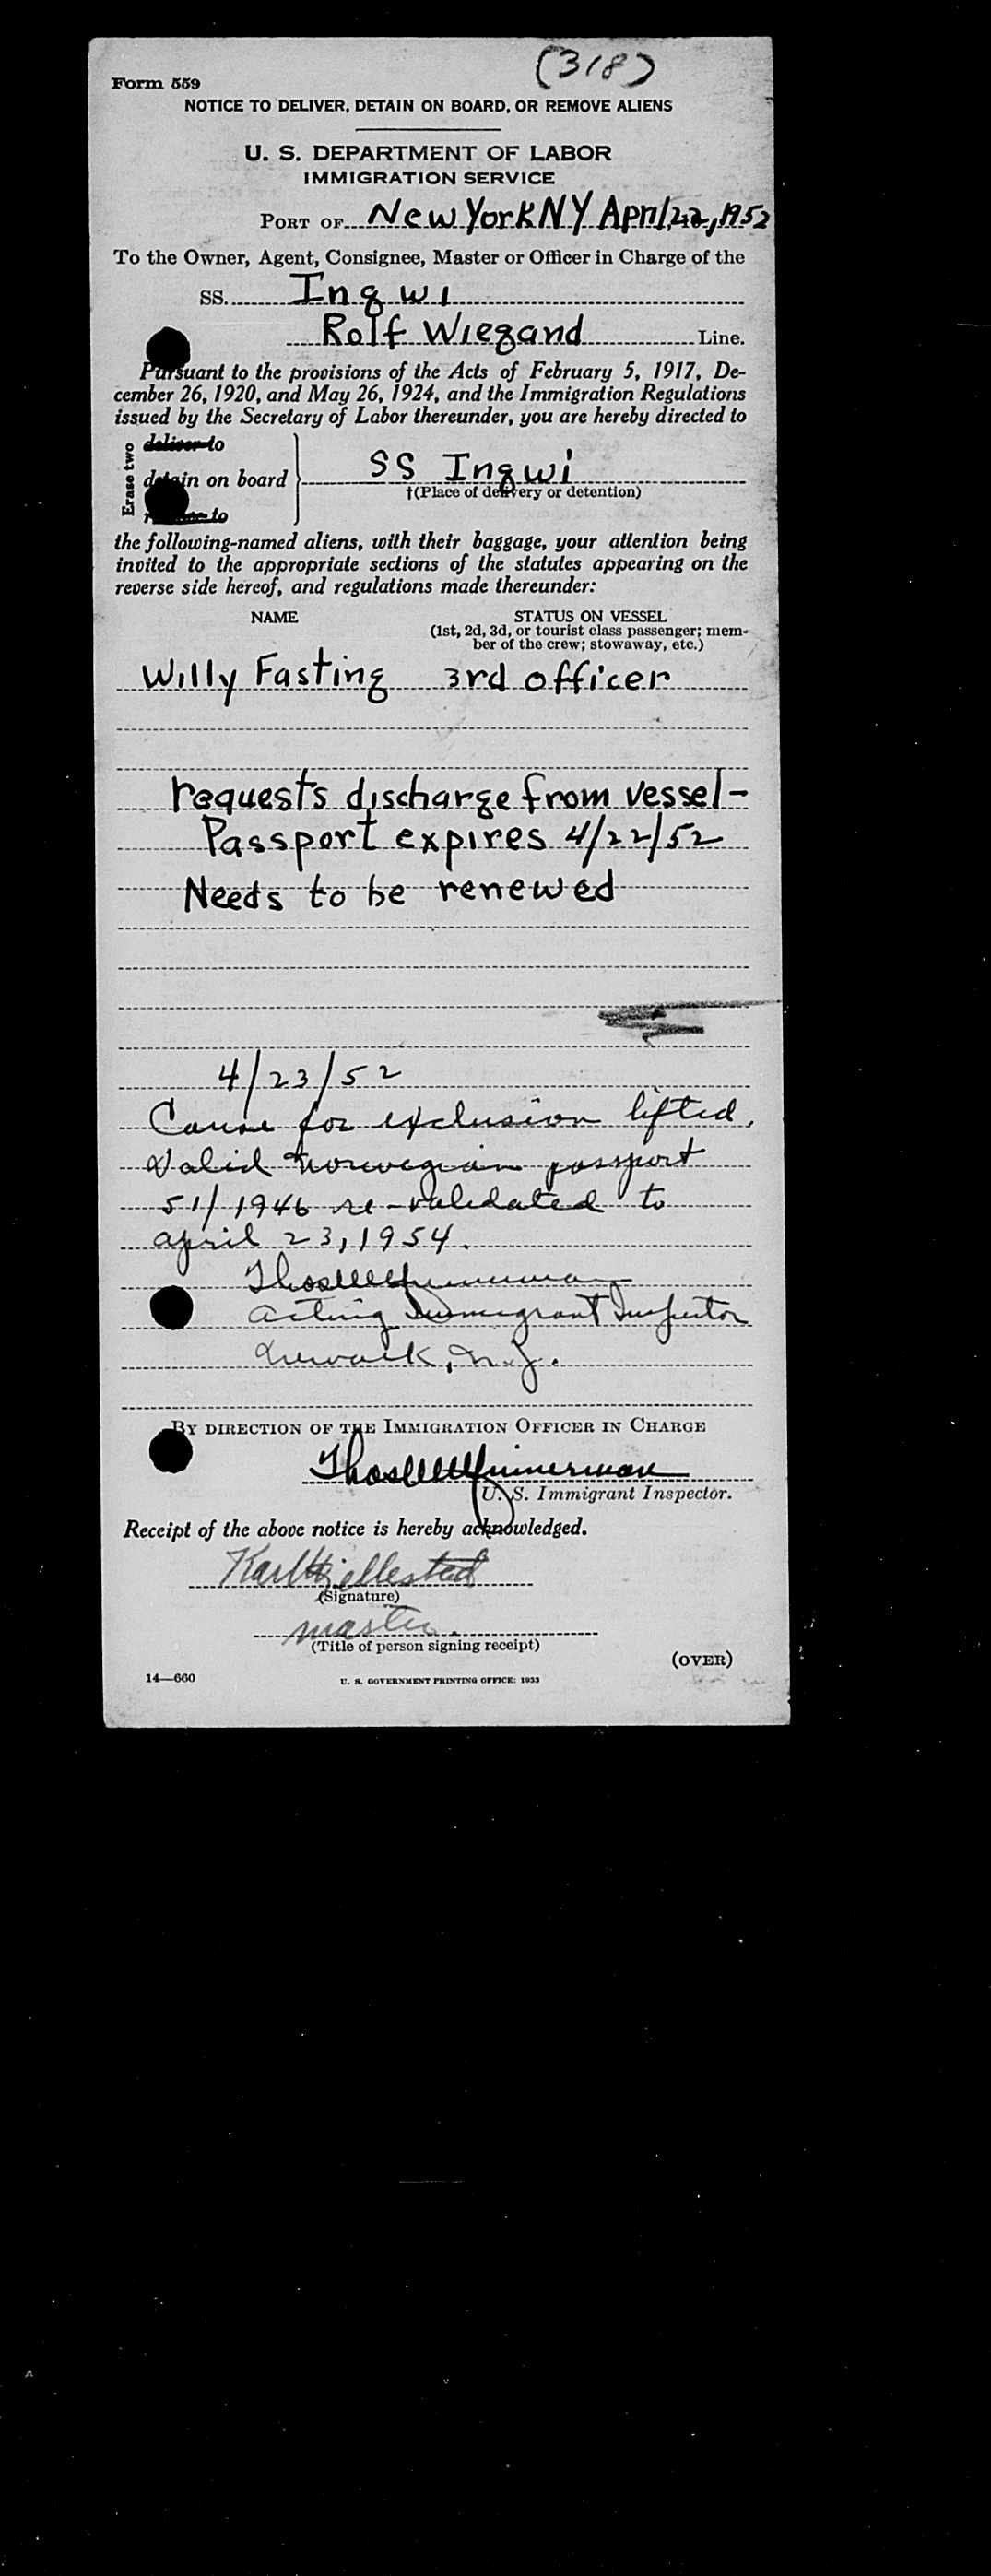 (318)
Form 559
NOTICE TO DELIVER, DETAIN ON BOARD, OR REMOVE ALIENS
U. S. DEPARTMENT OF LABOR
IMMIGRATION SERVICE
PORT OF New York NY April 22, 1952
To the Owner, Agent, Consignee, Master or Officer in Charge of the
SS. Ingwi
Rolf Wiegand Line.
Pursuant to the provisions of the Acts of February 5, 1917, De-
cember 26, 1920, and May 26, 1924, and the Immigration Regulations
issued by the Secretary of Labor thereunder, you are hereby directed to
Erase two
deliver to
detain on board SS Ingwi
†(Place of delivery or detention)
to
the following-named aliens, with their baggage, your attention being
invited to the appropriate sections of the statutes appearing on the
reverse side hereof, and regulations made thereunder:
NAME STATUS ON VESSEL
(1st, 2d, 3d, or tourist class passenger; mem-
ber of the crew; stowaway, etc.)
Willy Fasting 3rd officer
requests discharge from vessel-
Passport expires 4/22/52
Needs to be renewed
4/23/52
Cause for exclusion lifted.
Valid Norwegian passport
51/1946 re-validated to
april 23, 1954.
Thos Zimmerman
acting Immigrant Inspector
Newark, N.J.
BY DIRECTION OF THE IMMIGRATION OFFICER IN CHARGE
Thos Zimmerman
U. S. Immigrant Inspector.
Receipt of the above notice is hereby acknowledged.
Karl
(Signature)
master.
(Title of person signing receipt)
(OVER)
14—660 U. S. GOVERNMENT PRINTING OFFICE: 1933